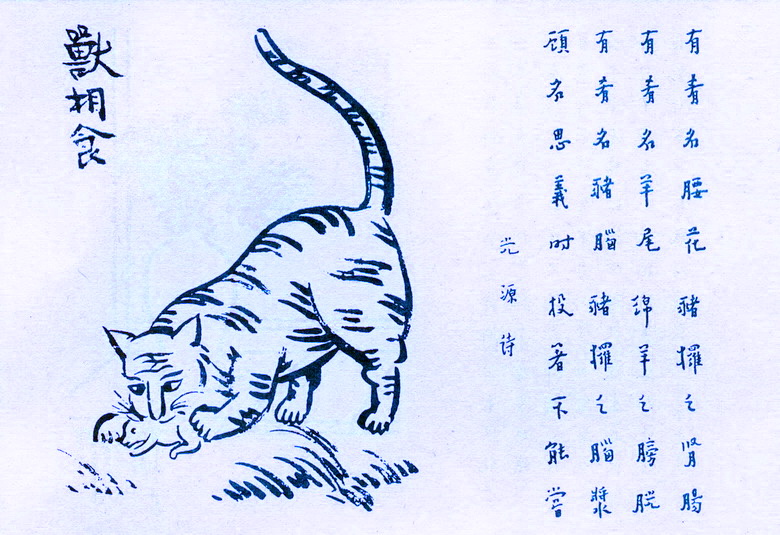 有肴名腰花 豬玀之腎腸
有肴名羊尾 綿羊之膀胱
有肴名豬腦 豬玀之腦漿
顧名思義时 投箸不能嘗
光源诗
獸相食